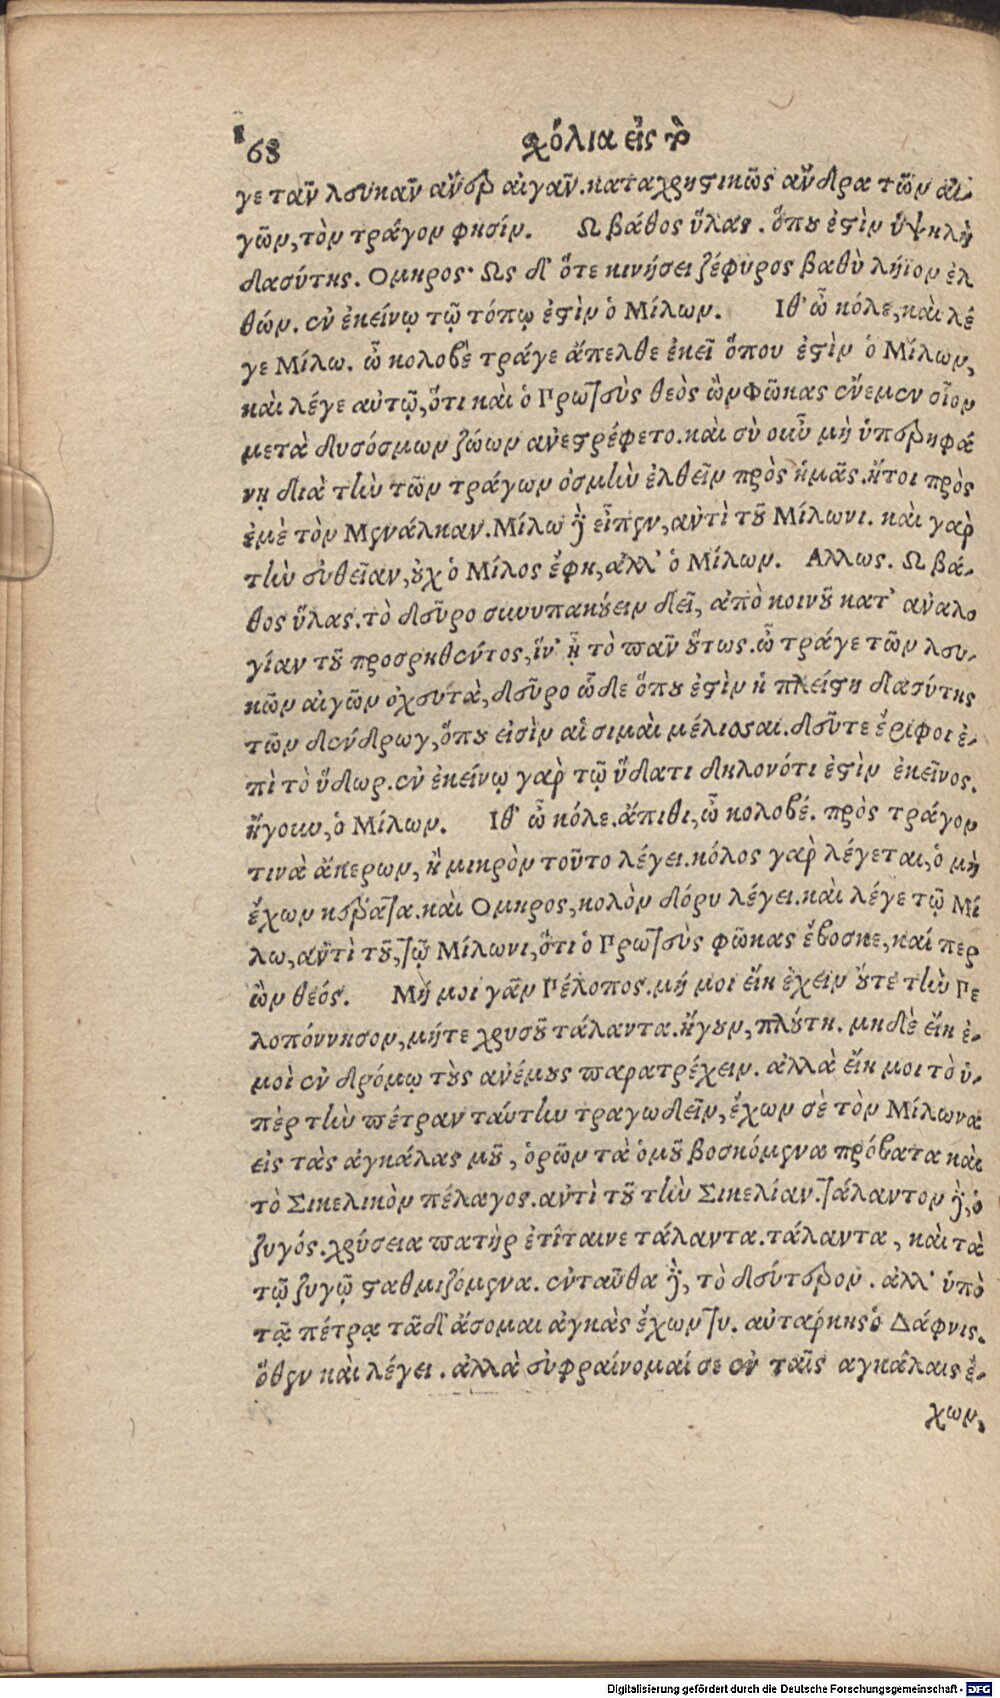 168
σχόλια εἰς τὸ
γε τᾶν λευκᾶν αἶνερ αἰγᾶν. καταχρηστικῶς ἄνδρα τῶν αἰ-
γῶν, τὸν τράγον φησίν. Ω βάθος ὕλας. ὅπου ἐστὶν ὑψηλὴ
δασύτης. Ομηρος· Ως δ' ὅτε κινήσει ζέφυρος βαθὺ λήϊον ἐλ
θών. ἐν ἐκείνῳ τῷ τόπῳ ἐστὶν ὁ Μίλων. Ιθ' ὦ κόλε, καὶ λέ
γε Μίλω. ὦ κολοβὲ τράγε ἄπελθε ἐκεῖ ὅπου ἐστὶν ὁ Μίλων,
καὶ λέγε αὐτῷ, ὅτι καὶ ὁ Πρωτεὺς θεὸς ὢν φῶκας ἔνεμεν οἷον
μετὰ δυσόσμων ζώων ἀνεστρέφετο. καὶ σὺ οὖν μὴ ὑπερηφά
νῃ διὰ τὴν τῶν τράγων ὀσμὴν ἐλθεῖν πρὸς ἡμᾶς. ἤτοι πρὸς
ἐμὲ τὸν Μενάλκαν. Μίλω δὲ εἶπεν, ἀντὶ τοῦ Μίλωνι. καὶ γὰρ
τὴν εὐθεῖαν, οὐχ ὁ Μίλος ἔφη, ἀλλ' ὁ Μίλων. Αλλως. Ω βά-
θος ὕλας. τὸ δεῦρο συνυπακούειν δεῖ, ἀπὸ κοινοῦ κατ' ἀναλο
γίαν τοῦ προσρηθέντος, ἵν' ᾖ τὸ πᾶν οὕτως. ὦ τράγε τῶν λευ-
κῶν αἰγῶν ὀχευτὰ, δεῦρο ὧδε ὅπου ἐστὶν ἡ πλείστη δασύτης
τῶν δένδρων, ὅπου εἰσὶν αἱ σιμαὶ μέλισσαι. δεῦτε ἔριφοι ἐ-
πὶ τὸ ὕδωρ. ἐν ἐκείνῳ γὰρ τῷ ὕδατι δηλονότι ἐστὶν ἐκεῖνος.
ἤγουν, ὁ Μίλων. Ιθ' ὦ κόλε. ἄπιθι, ὦ κολοβέ. πρὸς τράγον
τινὰ ἄκερων, ἢ μικρὸν τοῦτο λέγει. κόλος γὰρ λέγεται, ὁ μὴ
ἔχων κέρατα. καὶ Ομηρος, κολὸν δόρυ λέγει. καὶ λέγε τῷ Μί
λω, ἀντὶ τοῦ, τῷ Μίλωνι, ὅτι ὁ Πρωτεὺς φῶκας ἔβοσκε, καί περ
ὢν θεός. Μή μοι γᾶν Πέλοπος. μή μοι εἴη ἔχειν οὔτε τὴν Πε
λοπόννησον, μήτε χρυσοῦ τάλαντα. ἤγουν, πλούτη. μηδὲ εἴη ἐ-
μοὶ ἐν δρόμῳ τοὺς ἀνέμους παρατρέχειν. ἀλλὰ εἴη μοι τὸ ὑ-
πὲρ τὴν πέτραν ταύτην τραγωδεῖν, ἔχων σὲ τὸν Μίλωνα
εἰς τὰς ἀγκάλας μοῦ, ὁρῶν τὰ ὁμοῦ βοσκόμενα πρόβατα καὶ
τὸ Σικελικὸν πέλαγος. ἀντὶ τοῦ τὴν Σικελίαν. Τάλαντον δὲ, ὁ
ζυγός. χρύσεια πατὴρ ἐτίταινε τάλαντα. τάλαντα, καὶ τὰ
τῷ ζυγῷ σταθμιζόμενα. ἐνταῦθα δὲ, τὸ δεύτερον. ἀλλ' ὑπὸ
τᾷ πέτρᾳ τᾷδ' ἄσομαι ἀγκὰς ἔχων τυ. αὐτάρκης ὁ Δάφνις.
ὅθεν καὶ λέγει. ἀλλὰ εὐφραίνομαί σε ἐν ταῖς ἀγκάλαις ἔ-
χων,
Digitalisierung gefördert durch die Deutsche Forschungsgemeinschaft - DFG